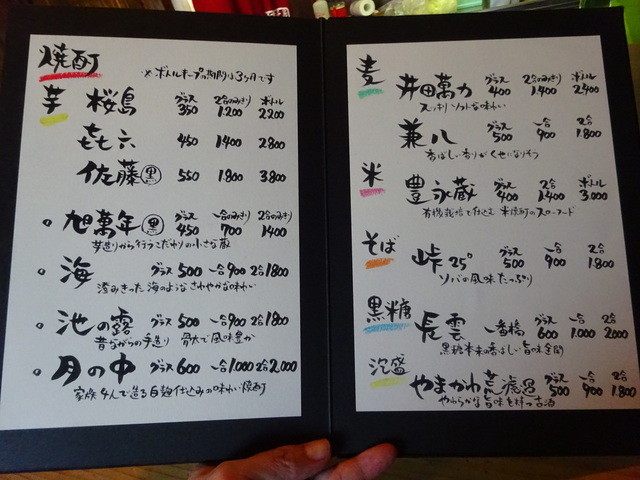 焼酎
※ボトルキープの期間は3ヶ月です
芋
桜島 グラス 350 2合のみきり 1.200 ボトル 2200
㐂六 450 1400 2800
佐藤㊥黒 550 1.800 3800
旭萬年 黒 グラス 450 一合のみきり 700 2合のみきり 1400
芋造りから行うこだわりの小さな蔵
海 グラス 500 一合 900 2合 1800
澄みきった海のようなさわやかな味わい
池の露 グラス 500 一合 900 2合 1800
昔ながらの手造り 骨太で風味豊か
月の中 グラス 600 一合 1.000 2合 2.000
家族4人で造る白麹仕込みの味わい焼酎
麦
井田萬力 グラス 400 2合のみきり 1.400 ボトル 2400
スッキリソフトな味わい
兼八 グラス 500 一合 900 2合 1.800
香ばしい香りがくせになりそう
米
豊永蔵 グラス 400 2合 1.400 ボトル 3.000
有機栽培で仕込む 米焼酎のスローフード
そば
峠25° グラス 500 一合 900 2合 1.800
ソバの風味たっぷり
黒糖
長雲 一番橋 グラス 600 一合 1.000 2合 2000
黒糖本来の香ばしい旨味全開
泡盛
やまかわ グラス 500 一合 900 2合 1.800
やわらかな旨味を持つ古酒